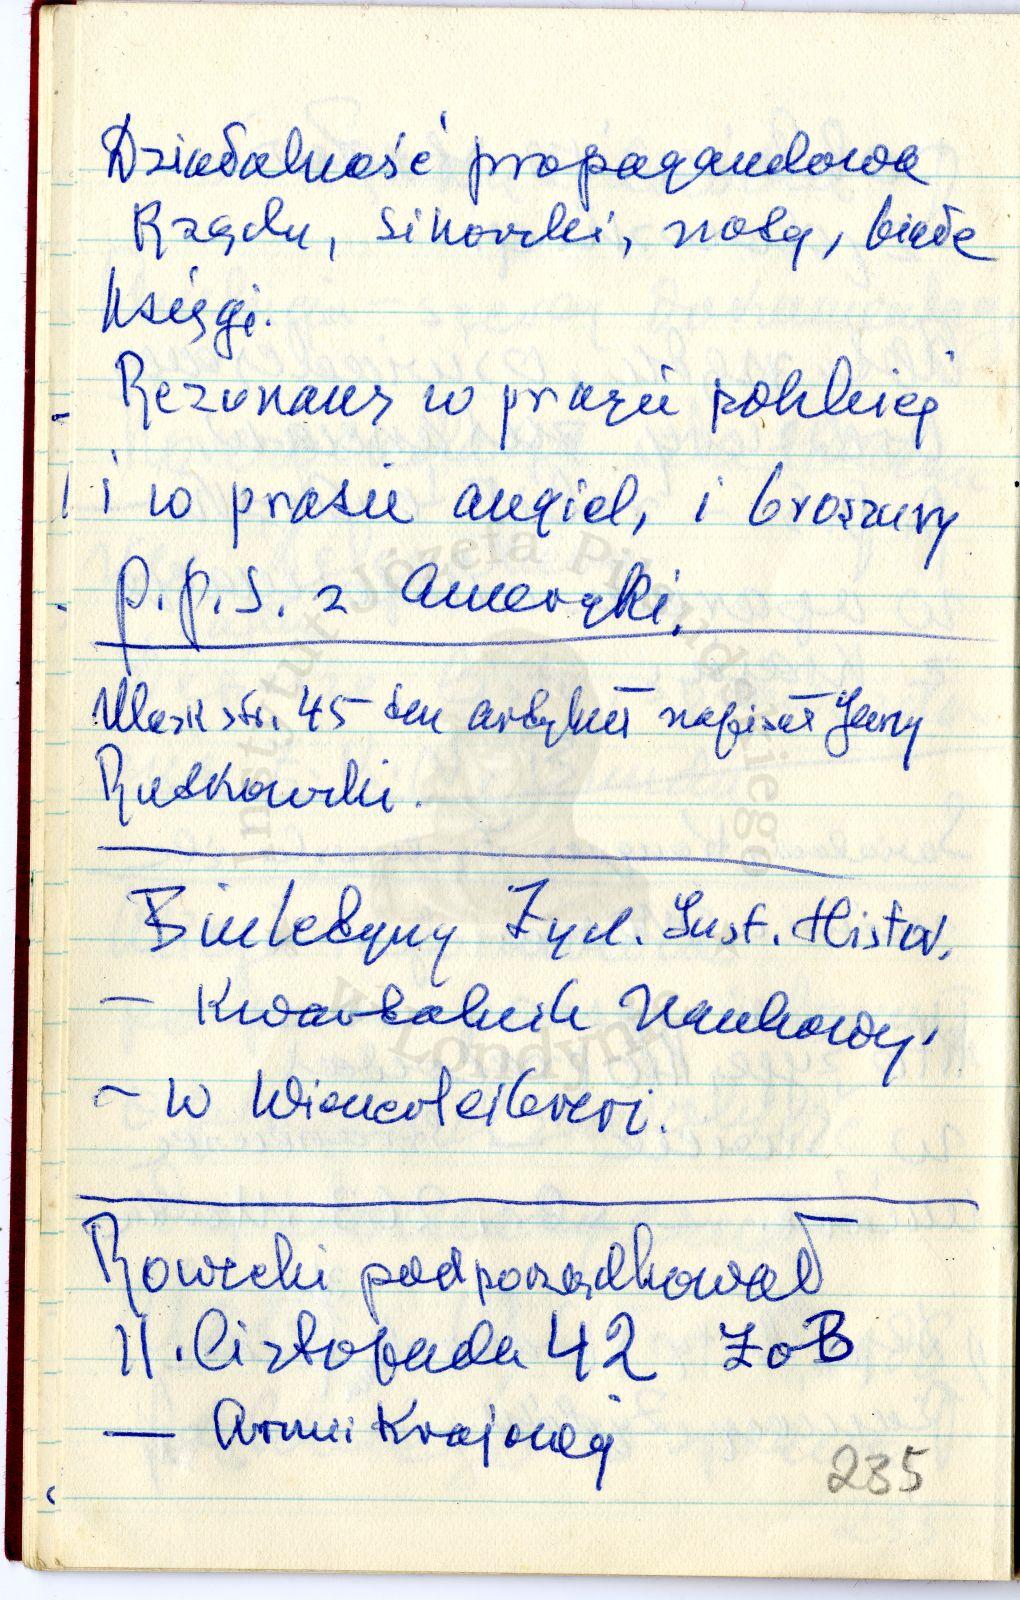 Działalność propagandowa
Rządu, Sikorski, notą, białe
księgi.
Rezonans w prasie polskiej
i w prasie angiel, i broszury
P.P.S. z Ameryki.
str. 45 ten artykuł napisał Jerzy
Rutkowski.
Biuletyny Żyd. Inst. Histor.
– Kwartalnik Naukowy.
– w Wienerleiberei.
Rowecki podporządkował
11. listopada 42 ŻoB
— Armii Krajowej
235
Instytut Józefa Piłsudskiego
w Londynie